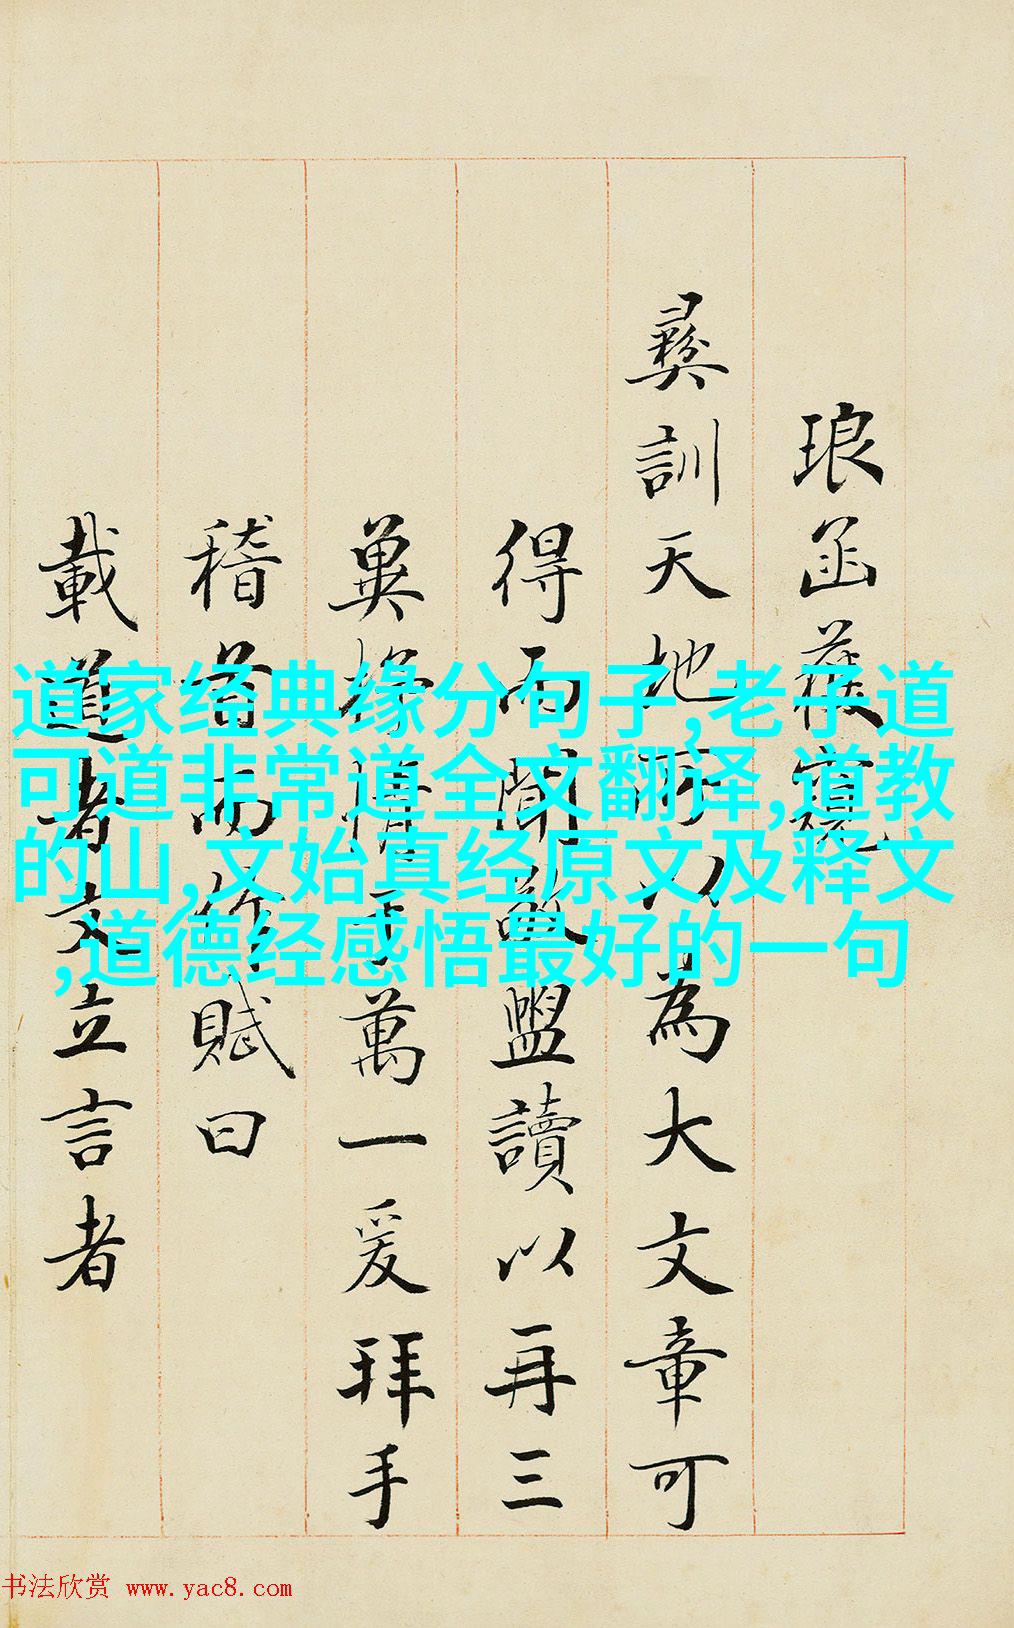 琅函
彞訓天地所以為大文章可
得而聞敬盥讀以再三
冀情于萬一爰拜手
稽首而作賦曰
載道者文立言者
道家经典缘分句子,老子道
可道非常道全文翻译,道教
的山,文始真经原文及释文
,道德经感悟最好的一句
书法欣赏 www.yac8.com